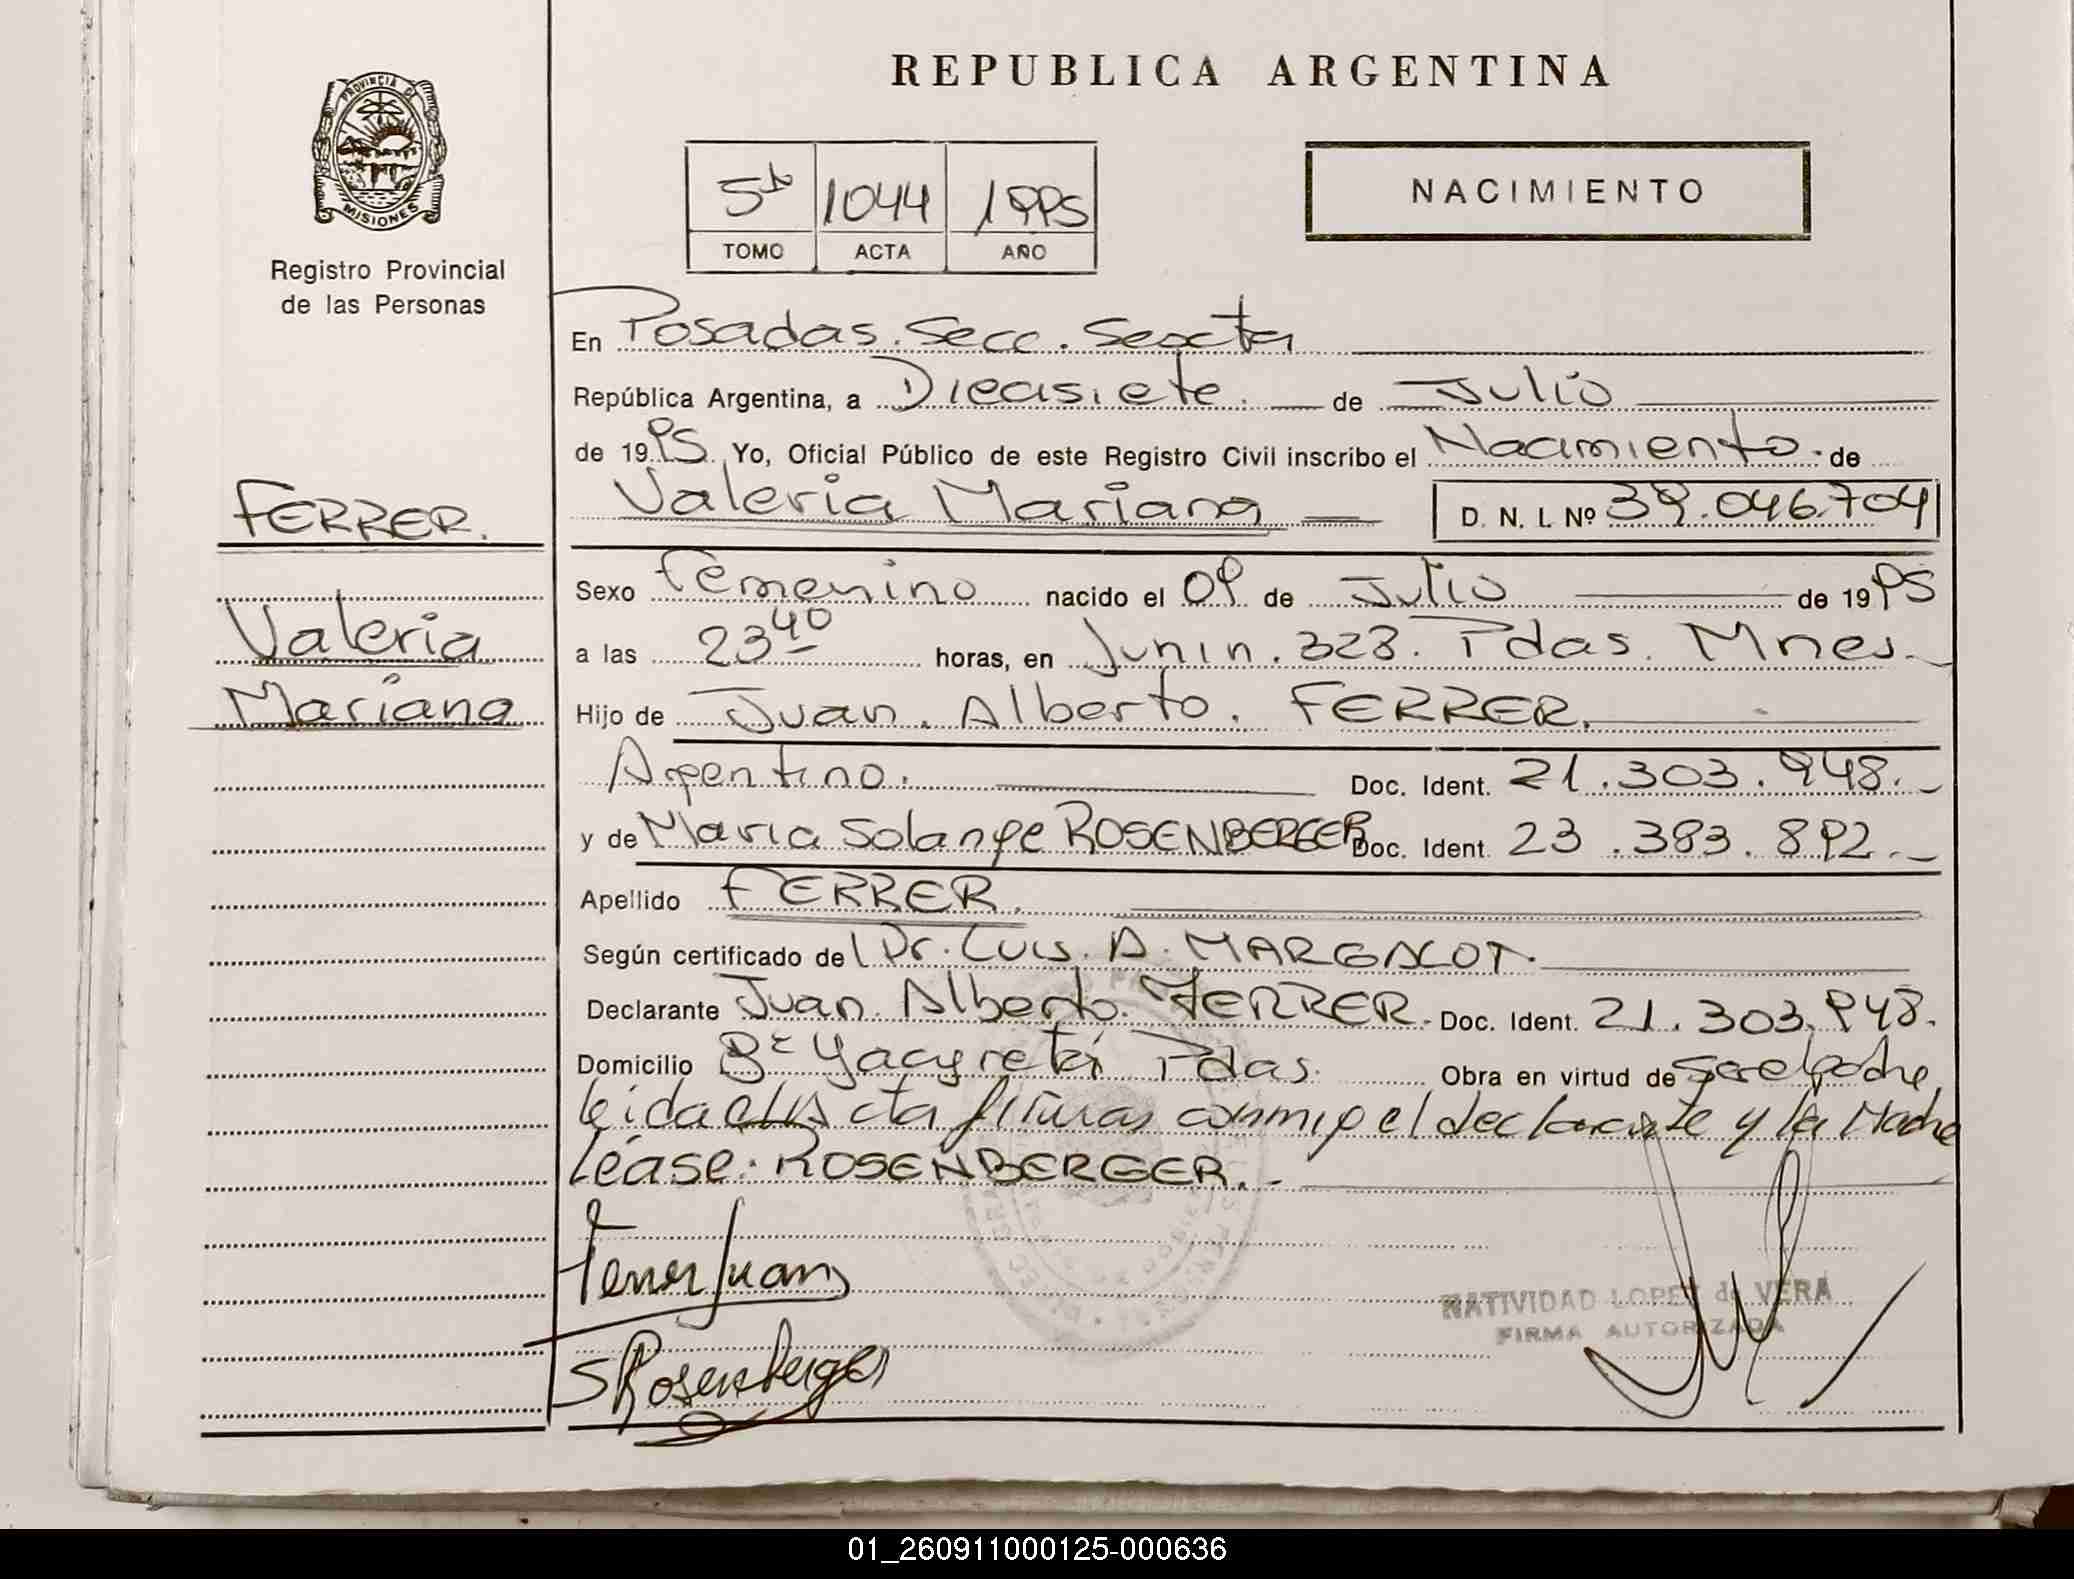 REPUBLICA ARGENTINA
PROVINCIA DE
MISIONES
Registro Provincial
de las Personas
5to 1044 1995
TOMO ACTA AÑO
NACIMIENTO
En Posadas. Secc. Sexta
República Argentina, a Diecisiete. de Julio
de 1995. Yo, Oficial Público de este Registro Civil inscribo el Nacimiento. de
Valeria Mariana D. N. I. Nº 39.046.704
FERRER.
Valeria
Mariana
Sexo Femenino nacido el 09 de Julio de 1995
a las 23 40 horas, en Junin. 323. Pdas. Mnes.
Hijo de Juan. Alberto. FERRER.
Argentino. Doc. Ident. 21.303.948.-
y de Maria Solange ROSENBERGER Doc. Ident. 23.383.892.-
Apellido FERRER.
Según certificado del Dr. Luis. A. MARGALOT.
Declarante Juan. Alberto. FERRER. Doc. Ident. 21.303.948.
Domicilio Bº Yacyretá Pdas. Obra en virtud de ser el padre,
Leida el Acta firman conmigo el declarante y la Madre
Léase: ROSENBERGER.-
Ferrer Juan
SRosenberger
NATIVIDAD LOPEZ de VERA
FIRMA AUTORIZADA
01_260911000125-000636